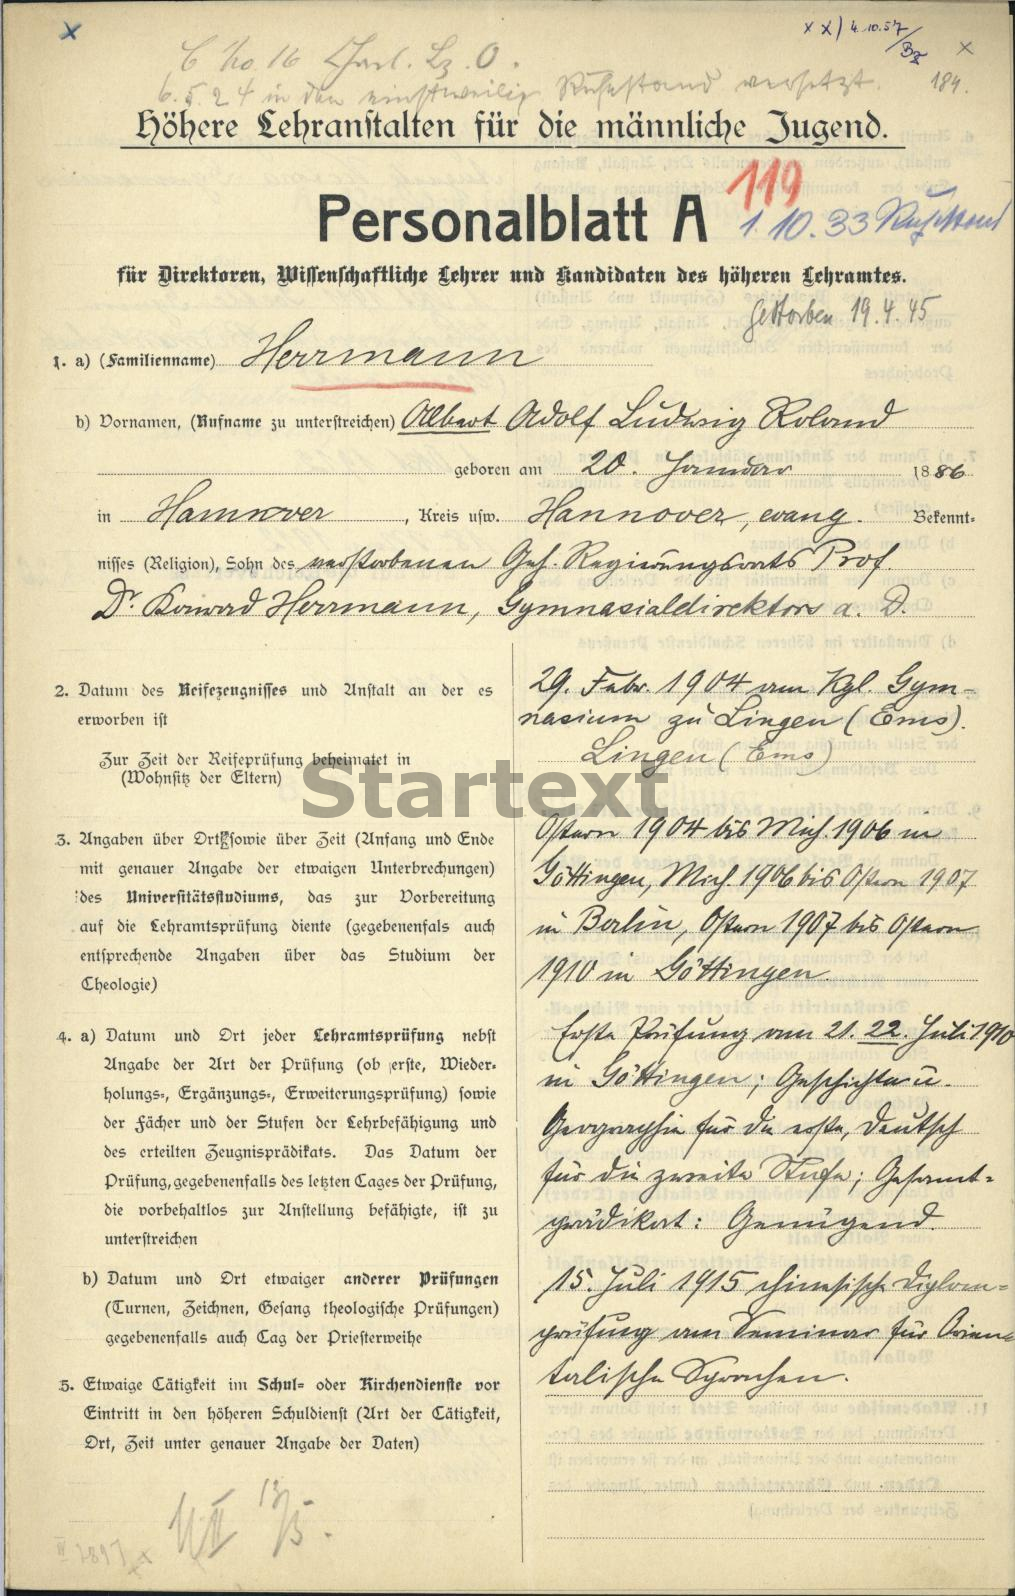 x x) 4.10.57
Bz
x
184.
C No. 16 Charl. Lz. O.
6.5.24 in den einstweilig Ruhestand versetzt.
Höhere Lehranstalten für die männliche Jugend.
119
Personalblatt A
1.10.33 Ruhestand
für Direktoren, Wissenschaftliche Lehrer und Kandidaten des höheren Lehramtes.
gestorben 19.4.45
1. a) (Familienname) Herrmann
b) Vornamen, (Rufname zu unterstreichen) Albert Adolf Ludwig Roland
geboren am 20. Januar 1886
in Hannover, Kreis usw. Hannover, evang. Bekennt-
nisses (Religion), Sohn des verstorbenen Geh. Regierungsrats Prof.
Dr. Konrad Herrmann, Gymnasialdirektors a. D.
2. Datum des Reifezeugnisses und Anstalt an der es
erworben ist
29. Febr. 1904 am Kgl. Gym-
nasium zu Lingen (Ems).
Zur Zeit der Reifeprüfung beheimatet in
(Wohnsitz der Eltern)
Lingen (Ems)
Startext
3. Angaben über Ort sowie über Zeit (Anfang und Ende
mit genauer Angabe der etwaigen Unterbrechungen)
des Universitätsstudiums, das zur Vorbereitung
auf die Lehramtsprüfung diente (gegebenenfals auch
entsprechende Angaben über das Studium der
Theologie)
Ostern 1904 bis Mich. 1906 in
Göttingen, Mich. 1906 bis Ostern 1907
in Berlin, Ostern 1907 bis Ostern
1910 in Göttingen.
4. a) Datum und Ort jeder Lehramtsprüfung nebst
Angabe der Art der Prüfung (ob erste, Wieder-
holungs-, Ergänzungs-, Erweiterungsprüfung) sowie
der Fächer und der Stufen der Lehrbefähigung und
des erteilten Zeugnisprädikats. Das Datum der
Prüfung, gegebenenfalls des letzten Tages der Prüfung,
die vorbehaltlos zur Anstellung befähigte, ist zu
unterstreichen
Erste Prüfung am 21. 22. Juli 1910
in Göttingen; Geschichte u.
Geographie für die erste, Deutsch
für die zweite Stufe; Gesamt-
prädikat: Genügend.
b) Datum und Ort etwaiger anderer Prüfungen
(Turnen, Zeichnen, Gesang theologische Prüfungen)
gegebenenfalls auch Tag der Priesterweihe
15. Juli 1915 chinesische Diplom-
prüfung am Seminar für Orien-
talische Sprachen.
5. Etwaige Tätigkeit im Schul- oder Kirchendienste vor
Eintritt in den höheren Schuldienst (Art der Tätigkeit,
Ort, Zeit unter genauer Angabe der Daten)